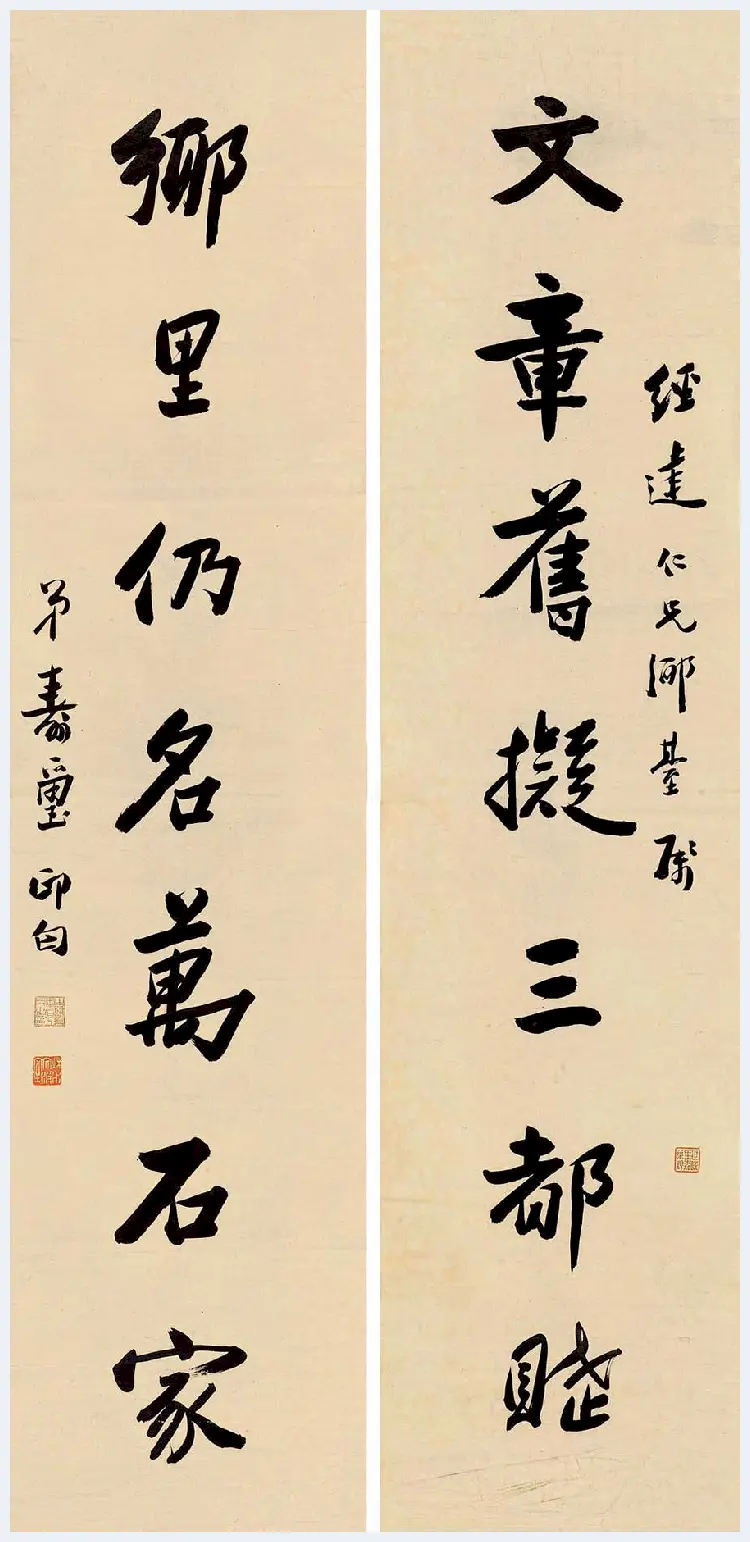 經達仁兄鄉臺屬
文章舊擬三都賦
鄉里仍名萬石家
弟壽璽印匄